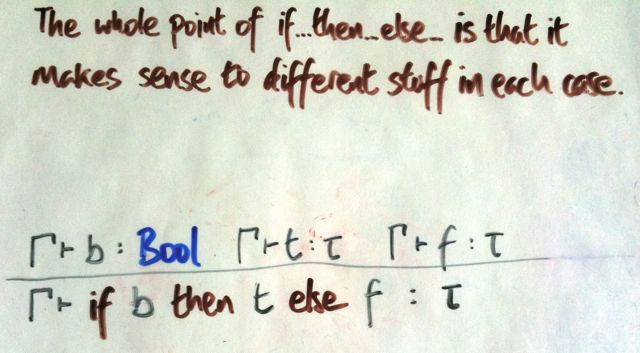 The whole point of if...then...else... is that it
makes sense to different stuff in each case.
Γ ⊢ b : Bool Γ ⊢ t : τ Γ ⊢ f : τ
Γ ⊢ if b then t else f : τ